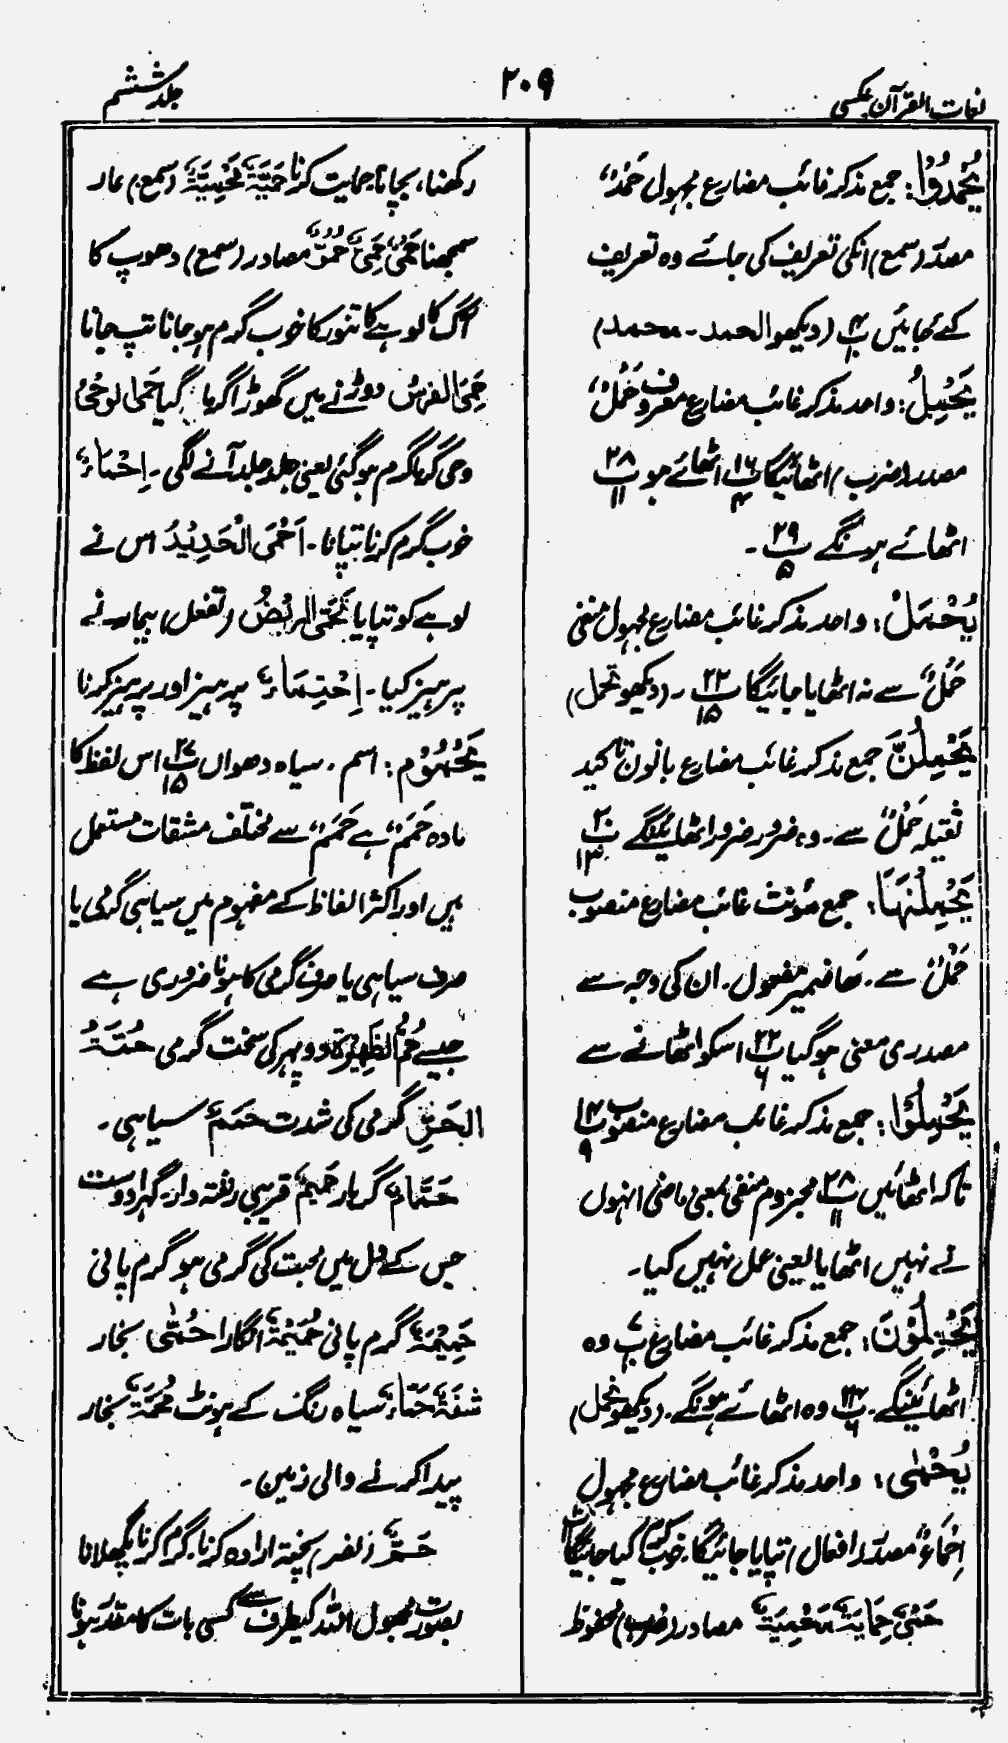 لغات القرآن عکسی
۲۰۹
جلد ششم
یُحْمَدُوْا: جمع مذکر غائب مضارع مجہول حَمْدٌ
مصدر (سمع) انکی تعریف کی جائے وہ تعریف
کئے جائیں پ۴ ۱۰ (دیکھو الحمد۔ محمد)
یَحْمِلُ: واحد مذکر غائب مضارع معروف حَمْلٌ
مصدر (ضرب) اٹھائیگا پ۱۶ ۴ اٹھائے ہو پ۲۸ ۱۱
اٹھائے ہونگے پ۲۹ ۵ ۔
یُحْمَلْ: واحد مذکر غائب مضارع مجہول منفی
حَمْلٌ سے نہ اٹھایا جائیگا پ۲۲ ۱۵ ۔ (دیکھو تحمل)
یَحْمِلُنَّ جمع مذکر غائب مضارع بانون تاکید
ثقیلہ حَمْلٌ سے۔ وہ ضرور ضرور اٹھائینگے پ۲۰ ۱۳
یَحْمِلْنَهَا: جمع مؤنث غائب مضارع منصوب
حَمْلٌ سے۔ ھا ضمیر مفعول۔ ان کی وجہ سے
مصدری معنی ہوگیا پ۲۲ ۶ اسکو اٹھانے سے
یَحْمِلُوْا: جمع مذکر غائب مضارع منصوب پ۱۴ ۹
تاکہ اٹھائیں پ۲۸ ۱۱ مجزوم منفی بمعنی ماضی انہوں
نے نہیں اٹھایا یعنی عمل نہیں کیا۔
یَحْمِلُوْنَ: جمع مذکر غائب مضارع پ۷ ۱۰ وہ
اٹھائینگے۔ پ۲۴ ۶ وہ اٹھائے ہونگے۔ (دیکھو تحمل)
یُحْمٰی: واحد مذکر غائب مضارع مجہول
اِحْمَاءٌ مصدر (افعال) تپایا جائیگا۔ خوب گرم کیا جائیگا پ۱۰ ۱۱
حَمْیٌ حِمَایَةٌ مَحْمِیَةٌ مصادر (ضرب) محفوظ
رکھنا، بچانا حمایت کرنا حَمِیَّةٌ مَحْمِیَّةٌ (سمع) عار
سمجھنا حَمْیٌ حَمِیٌّ حُمُوٌّ مصادر (سمع) دھوپ کا
آگ کا لوہے کا تنور کا خوب گرم ہوجانا تپ جانا
حَمِیَ الفرسُ دوڑنے میں گھوڑا گرما گیا حَمِیَ الوحیُ
وحی گویا گرم ہوگئی یعنی جلد جلد آنے لگی۔ اِحْمَاءٌ
خوب گرم کرنا تپانا۔ اَحْمَی الْحَدِیْدَ اس نے
لوہے کو تپایا تَحَمَّی المریْضُ (تفعل) بیمار نے
پرہیز کیا۔ اِحْتِمَاءٌ پرہیز اور پرہیز کرنا
یَحْمُوْمٍ: اسم۔ سیاہ دھواں پ۲۷ ۱۵ اس لفظ کا
مادہ حَمَمٌ ہے حَمَمٌ سے مختلف مشتقات مستعمل
ہیں اور اکثر الفاظ کے مفہوم میں سیاہی گرمی یا
صرف سیاہی یا صرف گرمی کا ہونا ضروری ہے
جیسے حُمُّ الظَّهِیْرَةِ دوپہر کی سخت گرمی حُمَّةُ
الحَرِّ گرمی کی شدت حَمَمٌ سیاہی۔
حَمَّامٌ گرمابہ حَمِیمٌ قریبی رشتہ دار۔ گہرا دوست
جس کے دل میں محبت کی گرمی ہو گرم پانی
حَمِیْمَةٌ گرم پانی حُمَیْمَةٌ انگارا حُمّٰی بخار
شَفَةٌ حَمَّاءُ سیاہ رنگ کے ہونٹ مُحَمَّةٌ بخار
پیدا کرنے والی زمین۔
حَمٌّ (نصر) پختہ ارادہ کرنا۔ گرم کرنا پگھلانا
بصورت مجہول اللہ کیطرف سے کسی بات کا مقدر ہونا